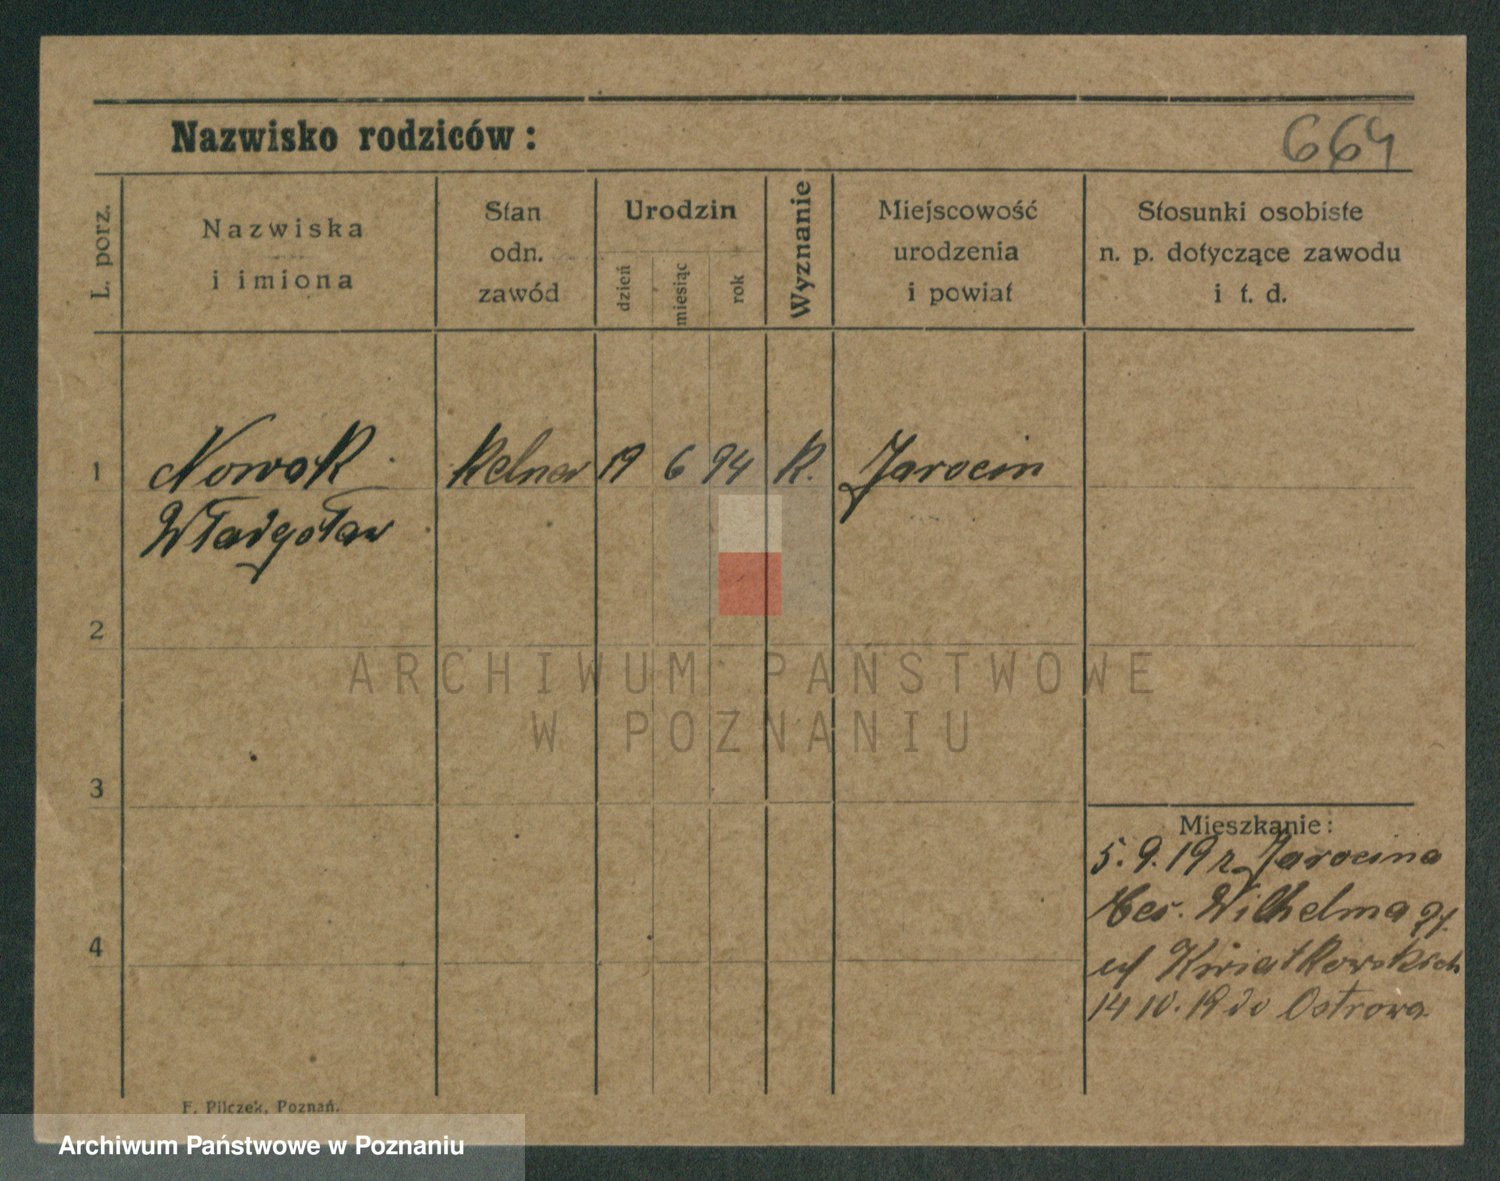 Nazwisko rodziców:
664
L. porz.
Nazwiska
i imiona
Stan
odn.
zawód
Urodzin
dzień
miesiąc
rok
Wyznanie
Miejscowość
urodzenia
i powiat
Stosunki osobiste
n. p. dotyczące zawodu
i t. d.
1 Nowak kelner 19 6 94 K. Jarocin
Władysław
2
ARCHIWUM PAŃSTWOWE
W POZNANIU
3
Mieszkanie:
5. 9. 19 z Jarocina
Ces. Wilhelma
Kwiatkowskich
4
14 10. 19 do Ostrowa
F. Pilczek, Poznań.
Archiwum Państwowe w Poznaniu